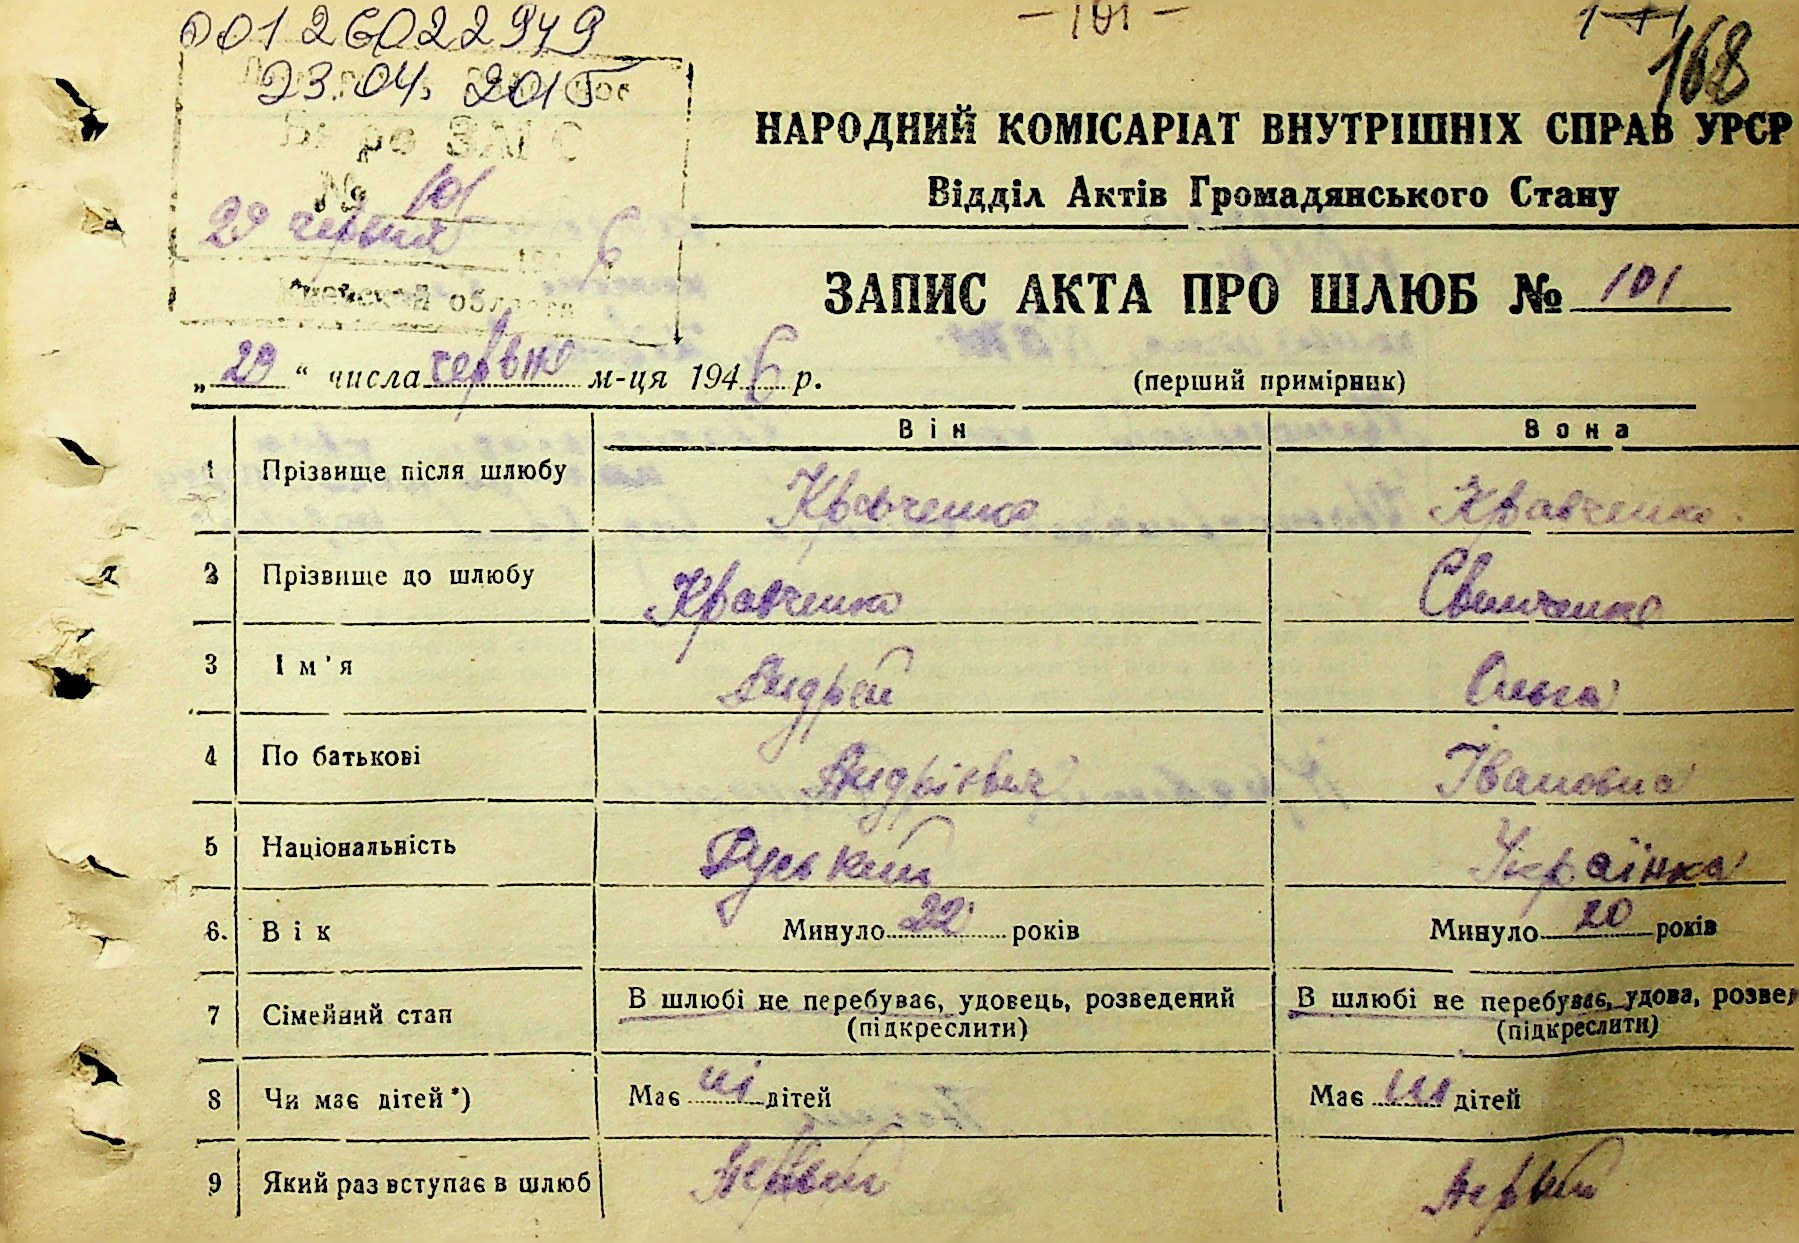 00126022949
23.04. 2015
- 101 -
168
Бюро ЗАГС
№ 101
29 червня 6
Киевской области
НАРОДНИЙ КОМІСАРІАТ ВНУТРІШНІХ СПРАВ УРСР
Відділ Актів Громадянського Стану
ЗАПИС АКТА ПРО ШЛЮБ № 101
„ 29 “ числа червня м-ця 1946 р. (перший примірник)
Він Вона
1 Прізвище після шлюбу Кравченко Кравченко.
2 Прізвище до шлюбу Кравченко Свинченко
3 Ім'я Андрей Ольга
4 По батькові Андрієвич Івановна
5 Національність Руський Українка
6. Вік Минуло 22 років Минуло 20 років
7 Сімейний стан В шлюбі не перебуває, удовець, розведений В шлюбі не перебуває, удова, розве
(підкреслити) (підкреслити)
8 Чи має дітей *) Має ні дітей Має ні дітей
9 Який раз вступає в шлюб первый первый